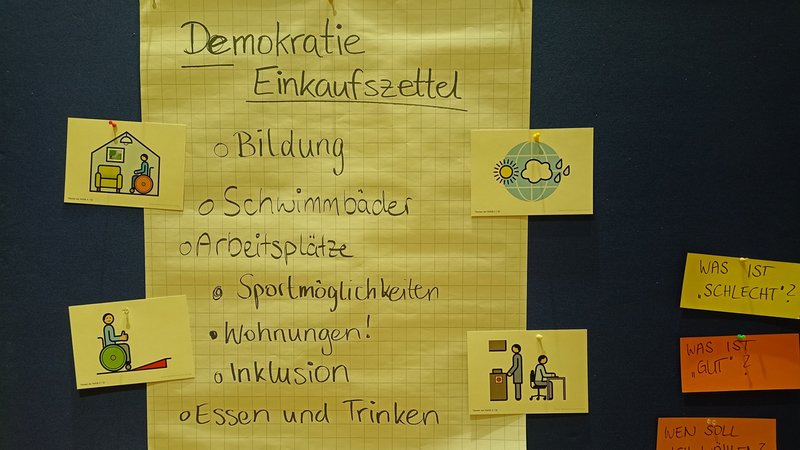 Demokratie
Einkaufszettel
Bildung
Schwimmbäder
Arbeitsplätze
Sportmöglichkeiten
Wohnungen!
Inklusion
Essen und Trinken
WAS IST
„SCHLECHT"?
WAS IST
„GUT"?
WEN SOLL
ICH WÄHLEN?